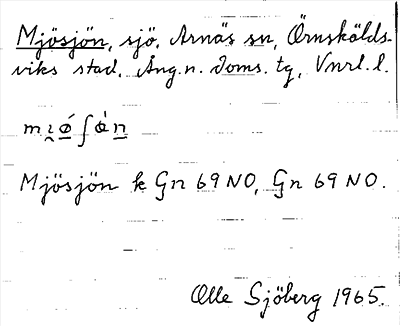 Mjösjön, sjö, Arnäs sn, Örnskölds-
viks stad, Ång.n. doms. tg, Vnrl. l.
Mjösjön k Gn 69 NO, Gn 69 NO.
Olle Sjöberg 1965.